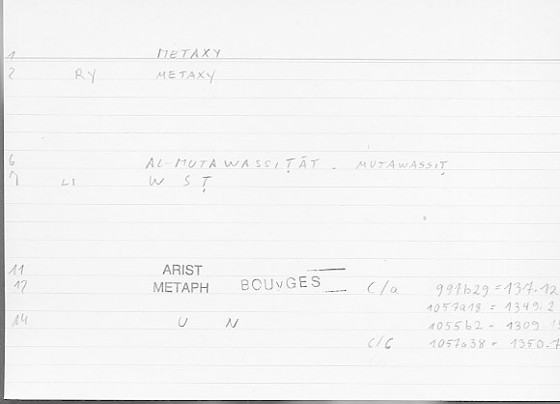 1 METAXY
2 RY METAXY
6 AL-MUTAWASSIṬĀT - MUTAWASSIṬ
7 LI W S Ṭ
11 ARIST
12 METAPH BOUYGES C/a 991b29=137.12
1057a18 = 1349.2
14 U N 1055b2 - 1309
C/C 1057a38 = 1350.7